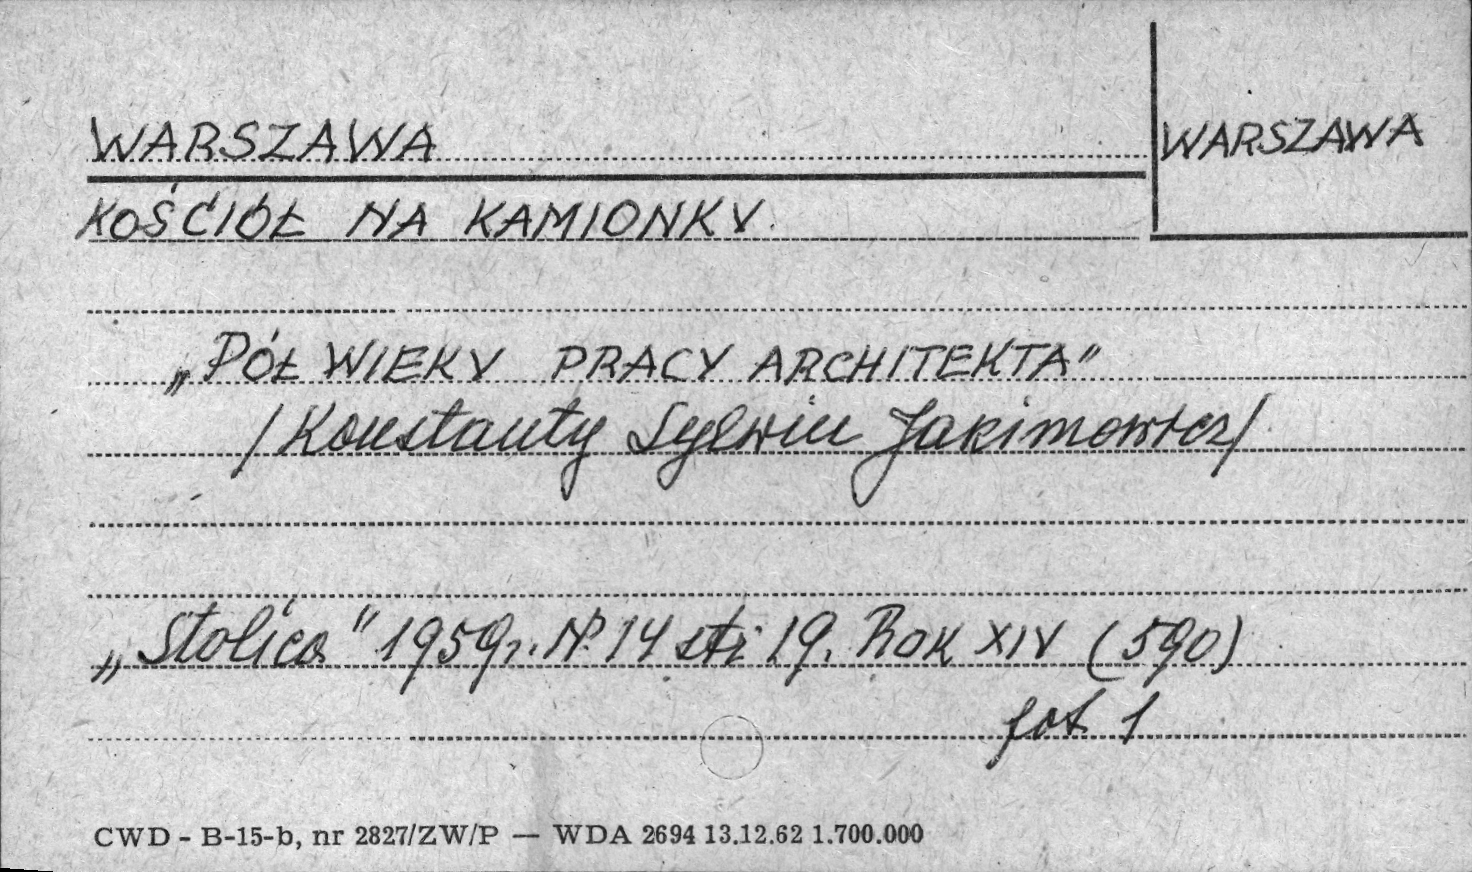 WARSZAWA
WARSZAWA
KOŚCIÓŁ NA KAMIONKU.
„PÓŁ WIEKU PRACY ARCHITEKTA"
/Konstanty Sylwin Jakimowicz/
„Stolica" 1959r. Nº 14 str 19. Rok XIV (590)
fot 1
CWD - B-15-b, nr 2827/ZW/P — WDA 2694 13.12.62 1.700.000